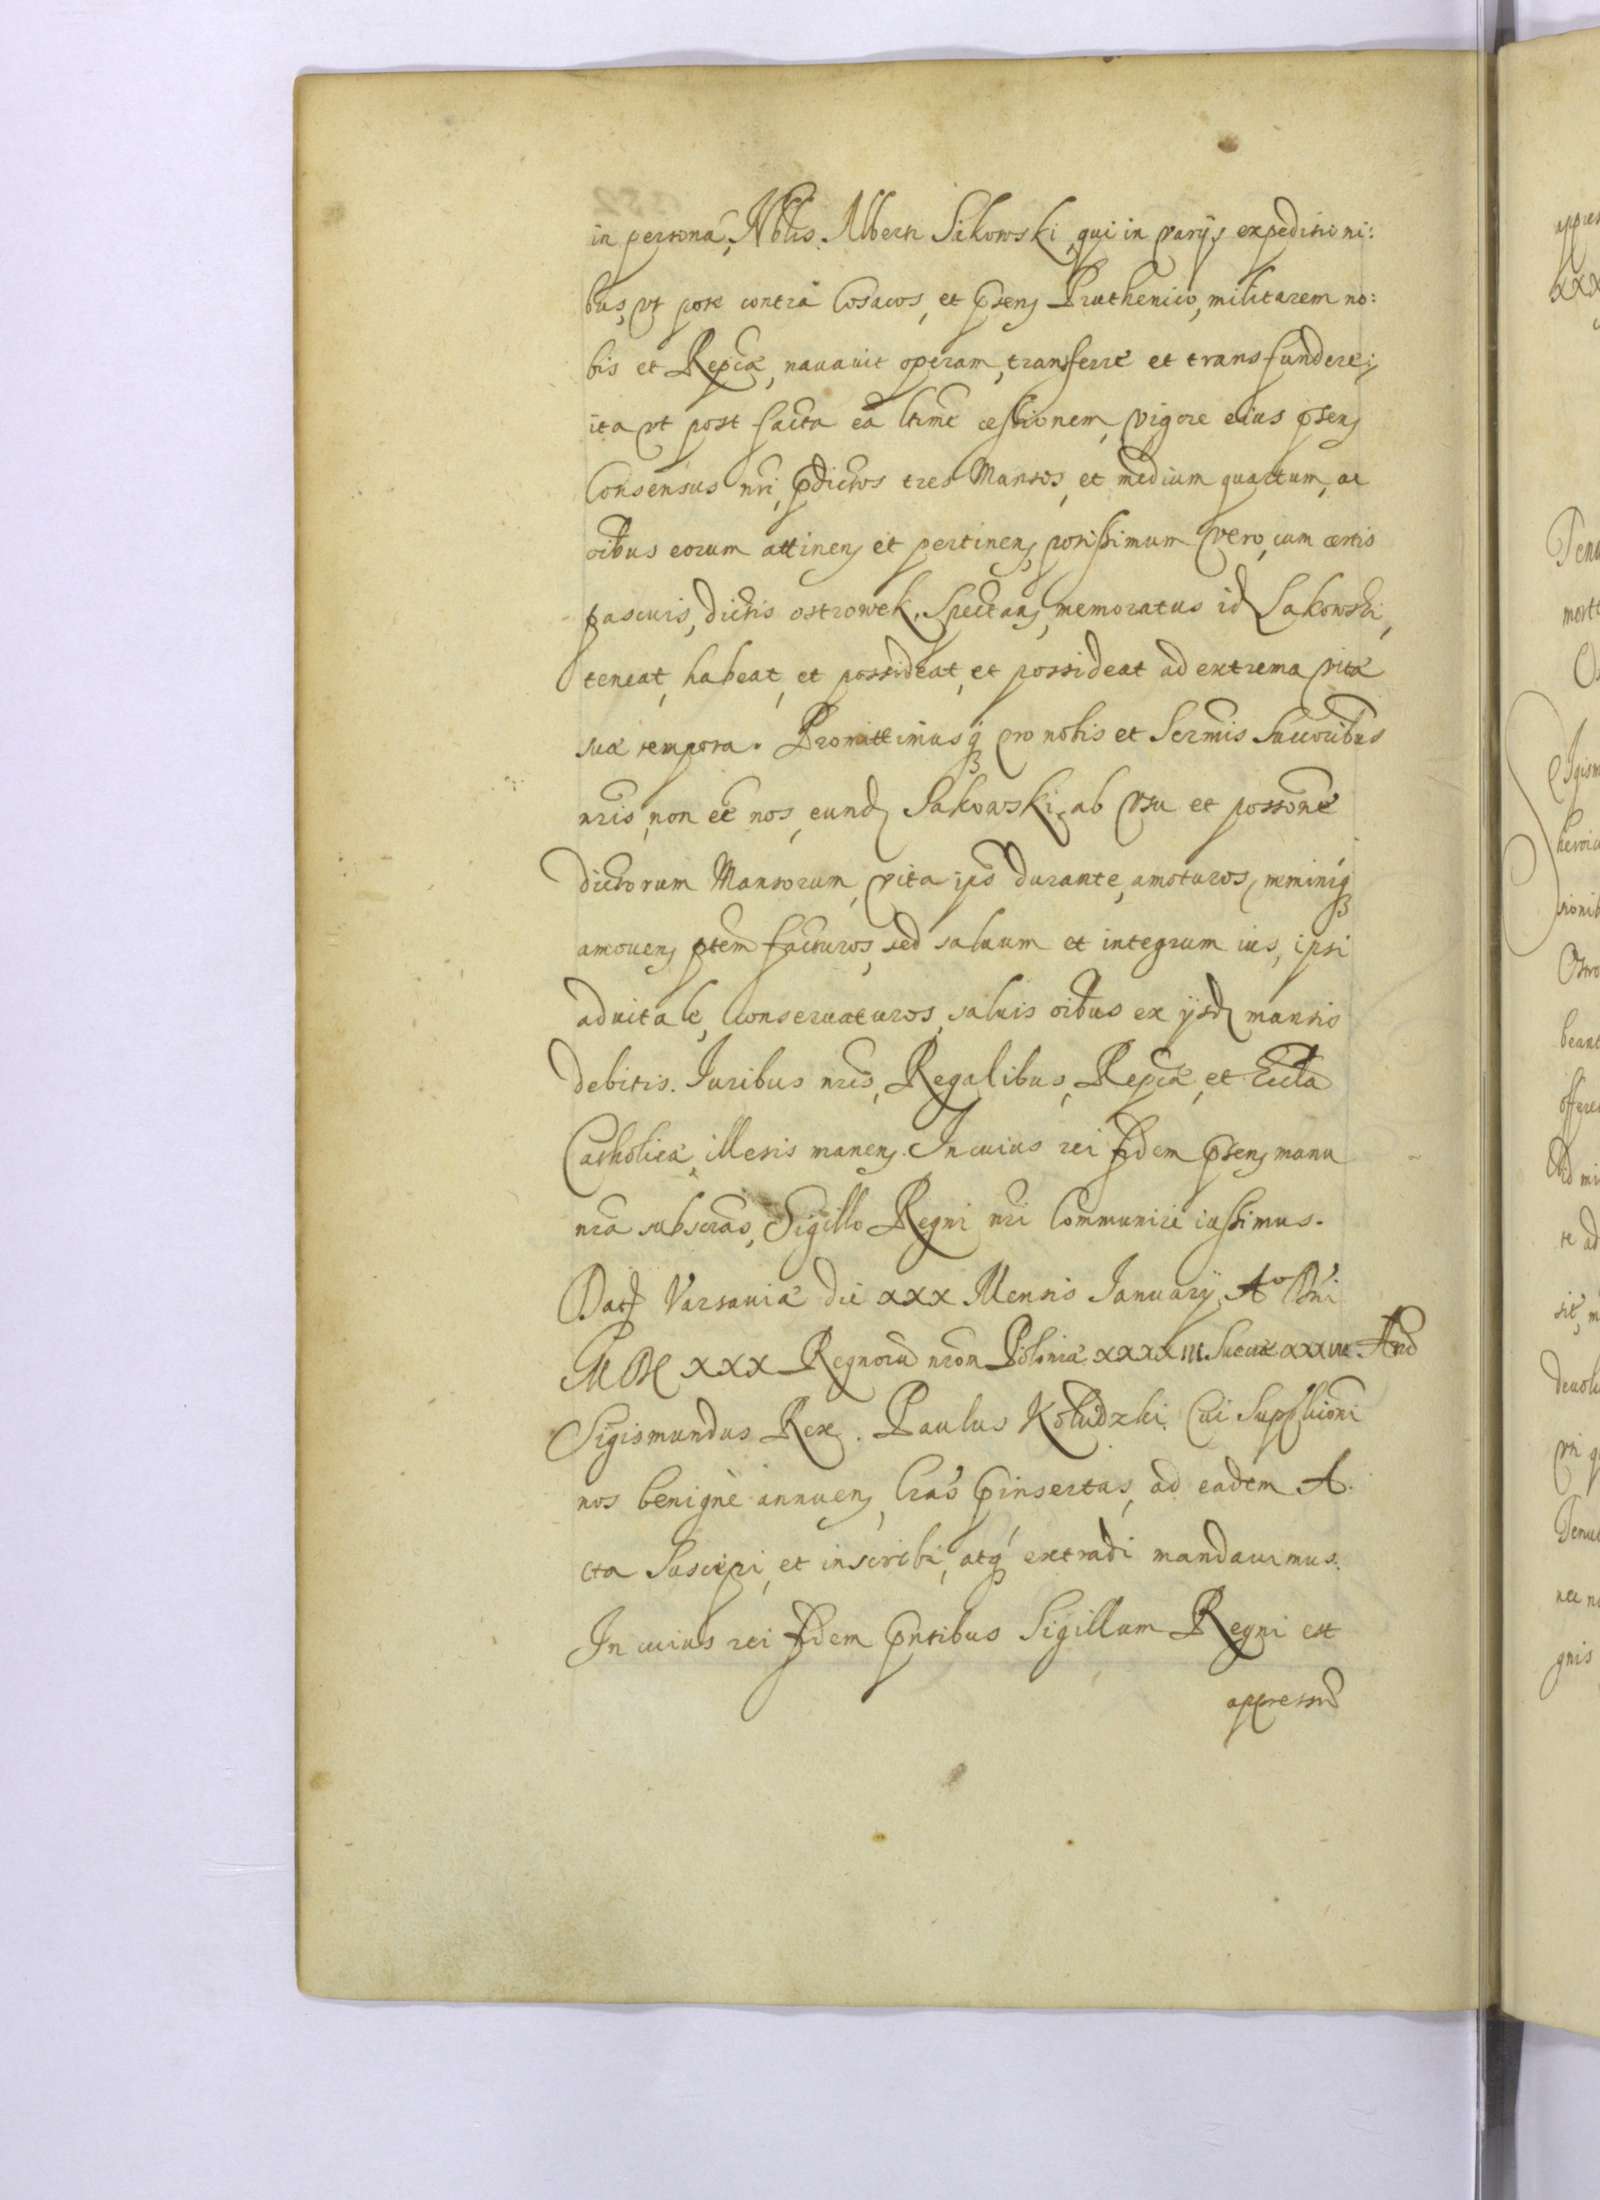 in persona, Nblis Alberti Sikowski, qui in varijs expeditioni:
bus, vt pote contra Cosacos, et pseng Pruthenico, militarem no:
bis et Repcæ, nauauit operam, transferre et transfundere;
ita vt post facta eā ltīme cessionem, vigore eius pseng
Consensus nri, pdictos tres Mansos, et medium quartum, ac
oibus eorum attineng et pertineng, potissimum vero, cum certis
pascuis, dictis ostrowek, Spectang, memoratus id Sakowski,
teneat, habeat, et possideat, et possideat ad extrema vitæ
suæ tempora. Promittimusq pro nobis et Sermis Succoribus
nris, non eē nos, eund Sakowski, ab vsu et possone
dictorum Mansorum, vita ipso durante, amoturos, neminiq
amoueng ptem facturos, sed saluum et integrum ius, ipsi
aduitale, conseruaturos, saluis oibus ex ijsd mansis
debitis. Iuribus nris, Regalibus, Repcæ, et Eccla
Catholicæ, illesis maneng. In cuius rei fidem pseng manu
nra subscras, Sigillo Regni nri Communire iussimus.
Dat Varsauiæ die xxx Mensis Ianuarij, Ao Dni
MDC xxx Regnorū nrōn Poloniæ xxxxiii. Sueciæ xxxvii. And
Sigismundus Rex. Paulus Kołudzki. Cui Supplicioni
nos benignè annueng, lras pinsertas, ad eadem A.
cta Suscipi, et inscribi, atq extradi mandauimus.
In cuius rei fidem pntibus Sigillum Regni est
appressū